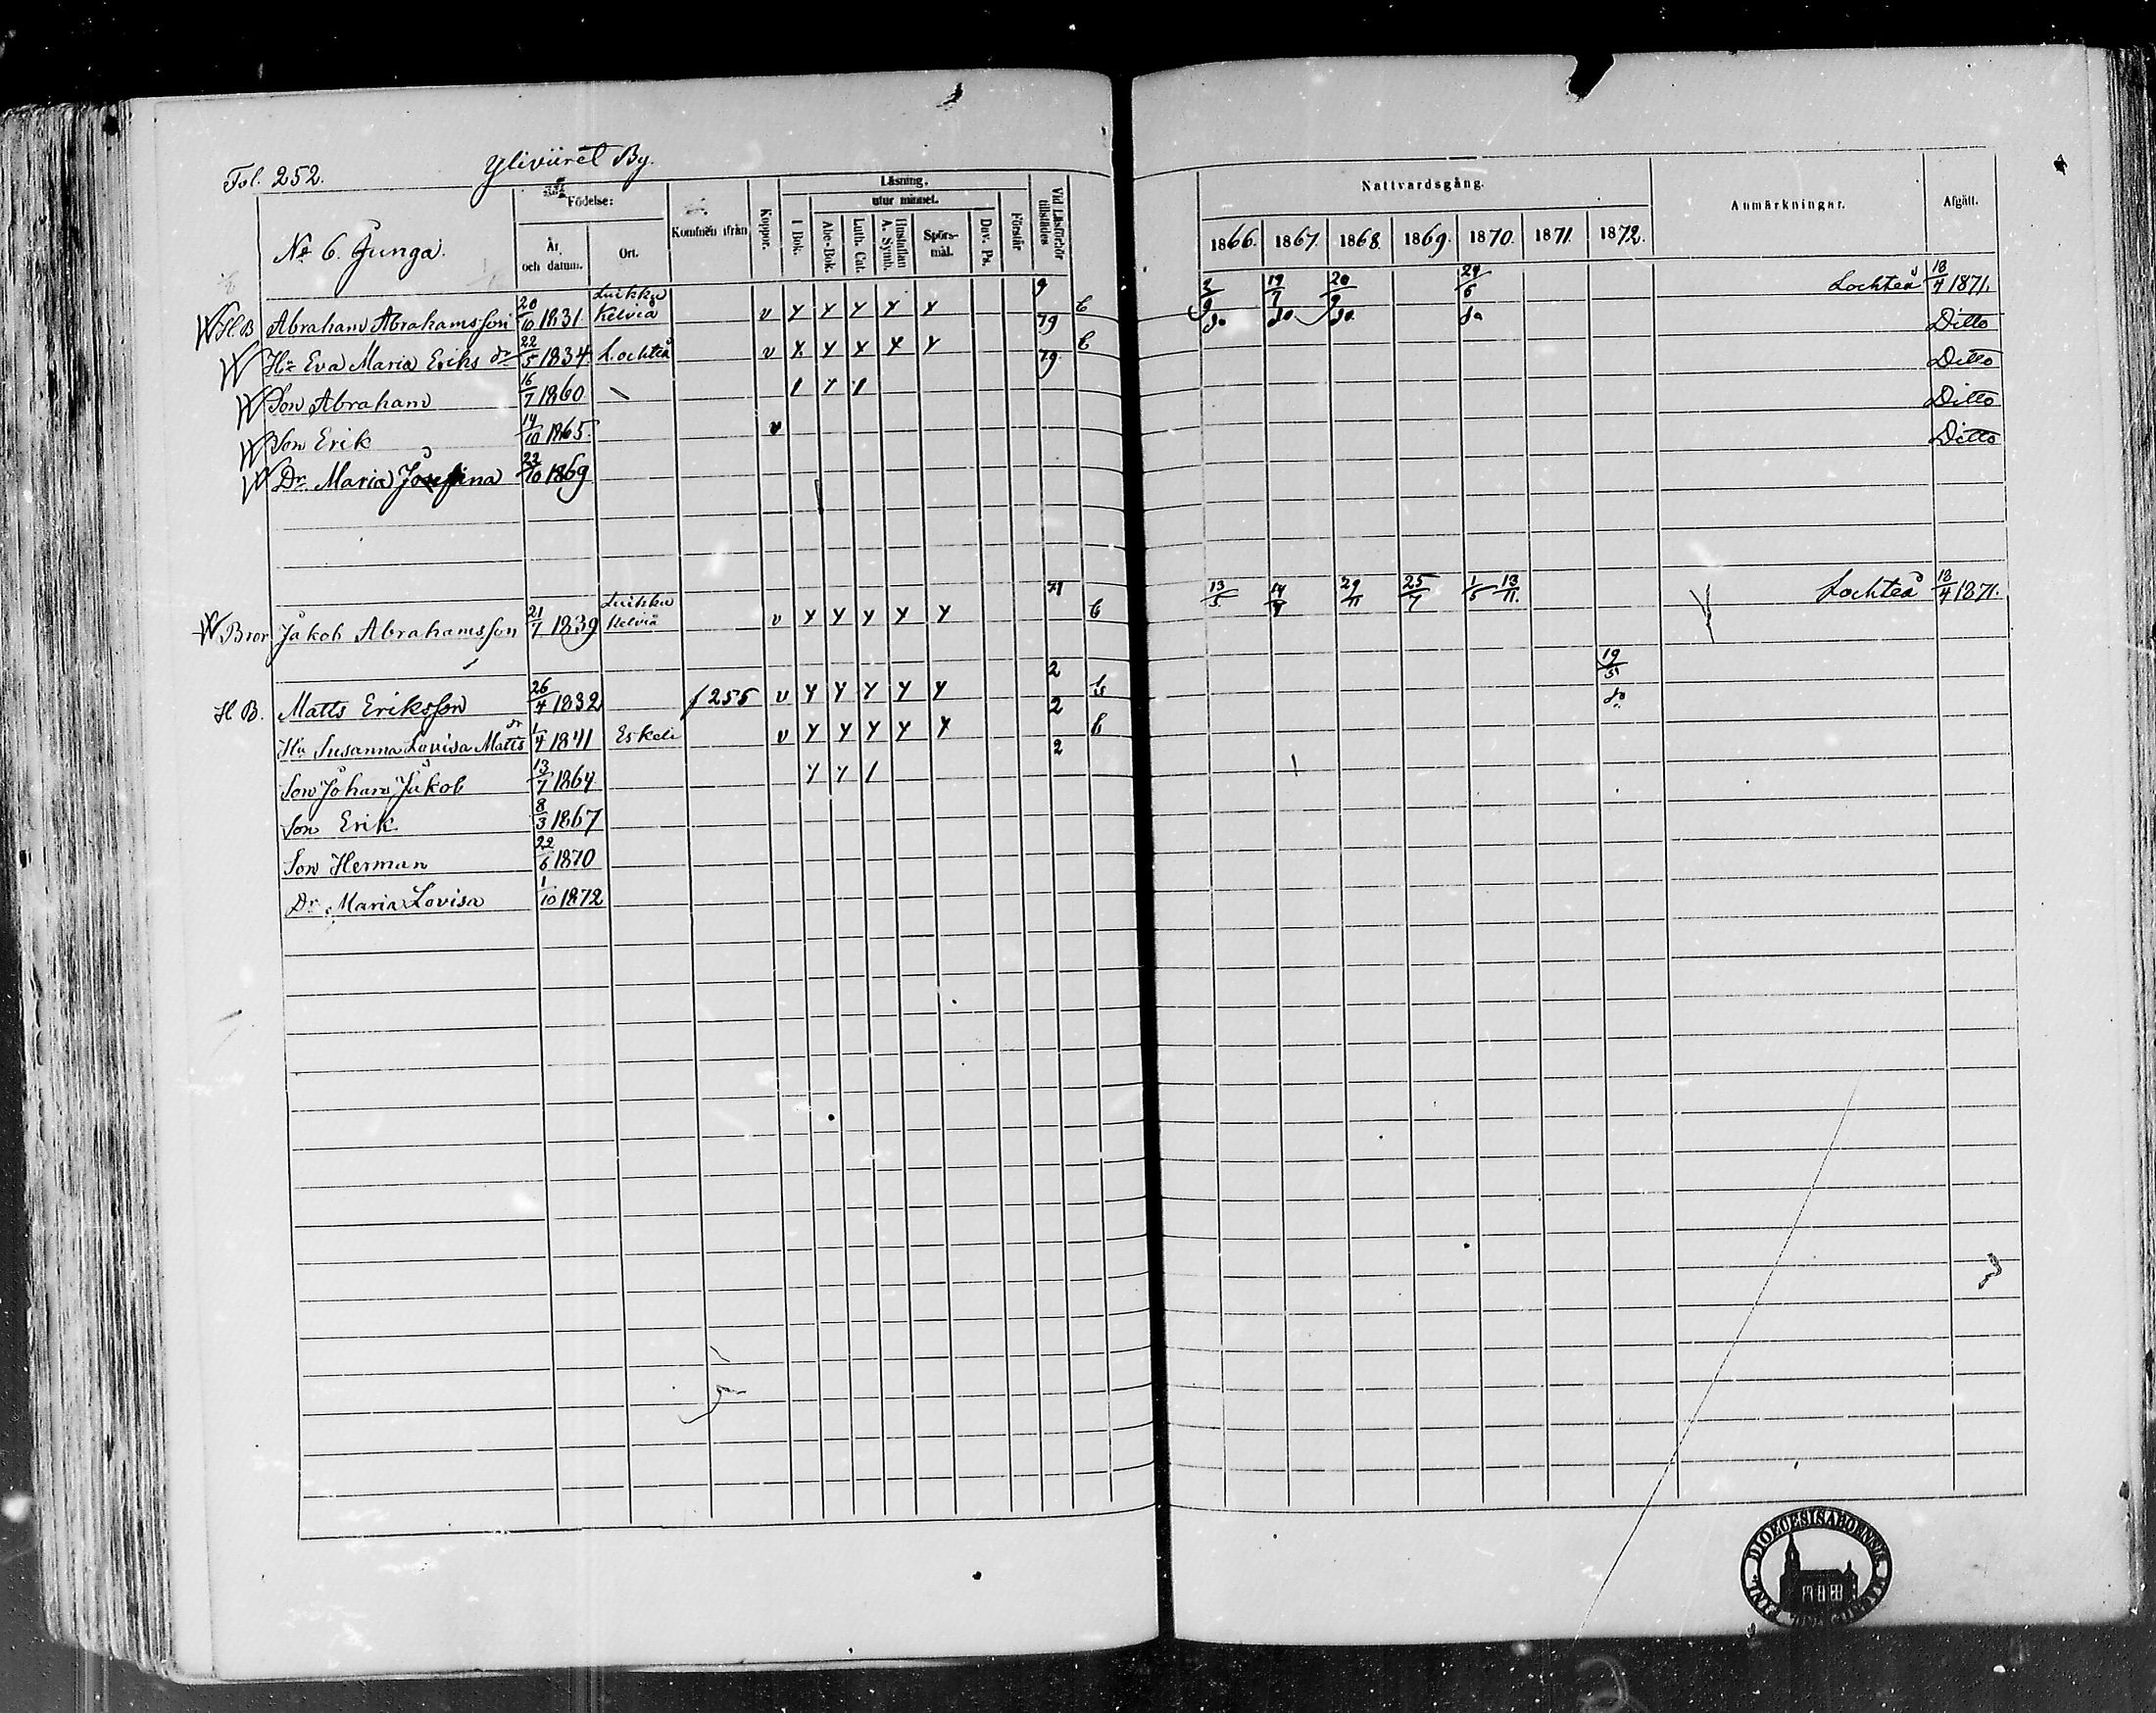 Fol. 252. Ylivüret By.
Födelse: Kommen ifrån Koppor. Läsning. Vid Läsförhör tillstädes Nattvardsgång. Anmärkningar. Afgått.
utur minnet.
№ 6. Junga. År och datum. Ort. I Bok. Abc-Bok. Luth. Cat. Hustaflan A. Symb. Spörsmål. Dav. Ps. Förstår 1866. 1867. 1868. 1869. 1870. 1871. 1872.
H.B Abraham Abrahamsson 20/10 1831 Kelviå v 9 19/7 20/9 29/6 Lochteå 18/4 1871.
Hu Eva Maria Eriks dr 22/5 1834. Lochteå v 79 do do do do Ditto
Son Abraham 16/7 1860 79 Ditto
Son Erik 14/10 1865. v Ditto
Dr. Maria Josefina 22/10 1869 Ditto
Bror Jakob Abrahamsson 21/7 1839 Kelviå v 71 13/5 29/11 25/7 1/5 13/11. Lochteå 18/4 1871.
H B. Matts Eriksson 26/4 1832 f 255 v 2 19/5
Hu Susanna Lovisa Matts dr 1/4 1841 Eskeli v 2 do.
Son Johan Jakob 13/7 1864 2
Son Erik 8/3 1867
Son Herman 22/6 1870
Dr. Maria Lovisa 1/10 1872